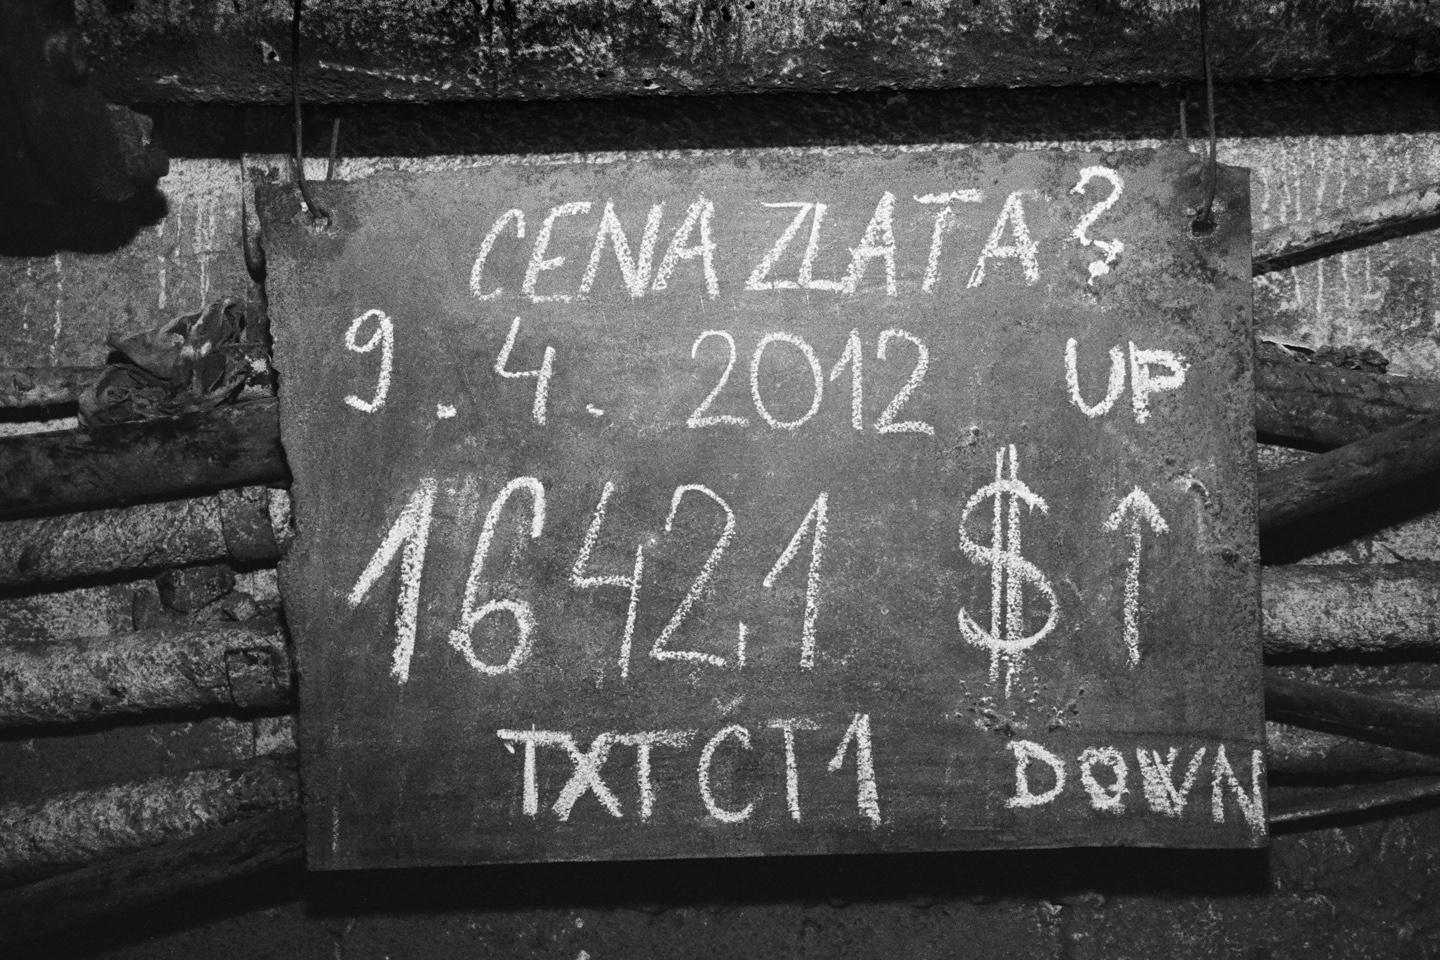 CENA ZLATA?
9. 4. 2012 UP
1642,1 $ ↑
TXT ČT1 DOWN